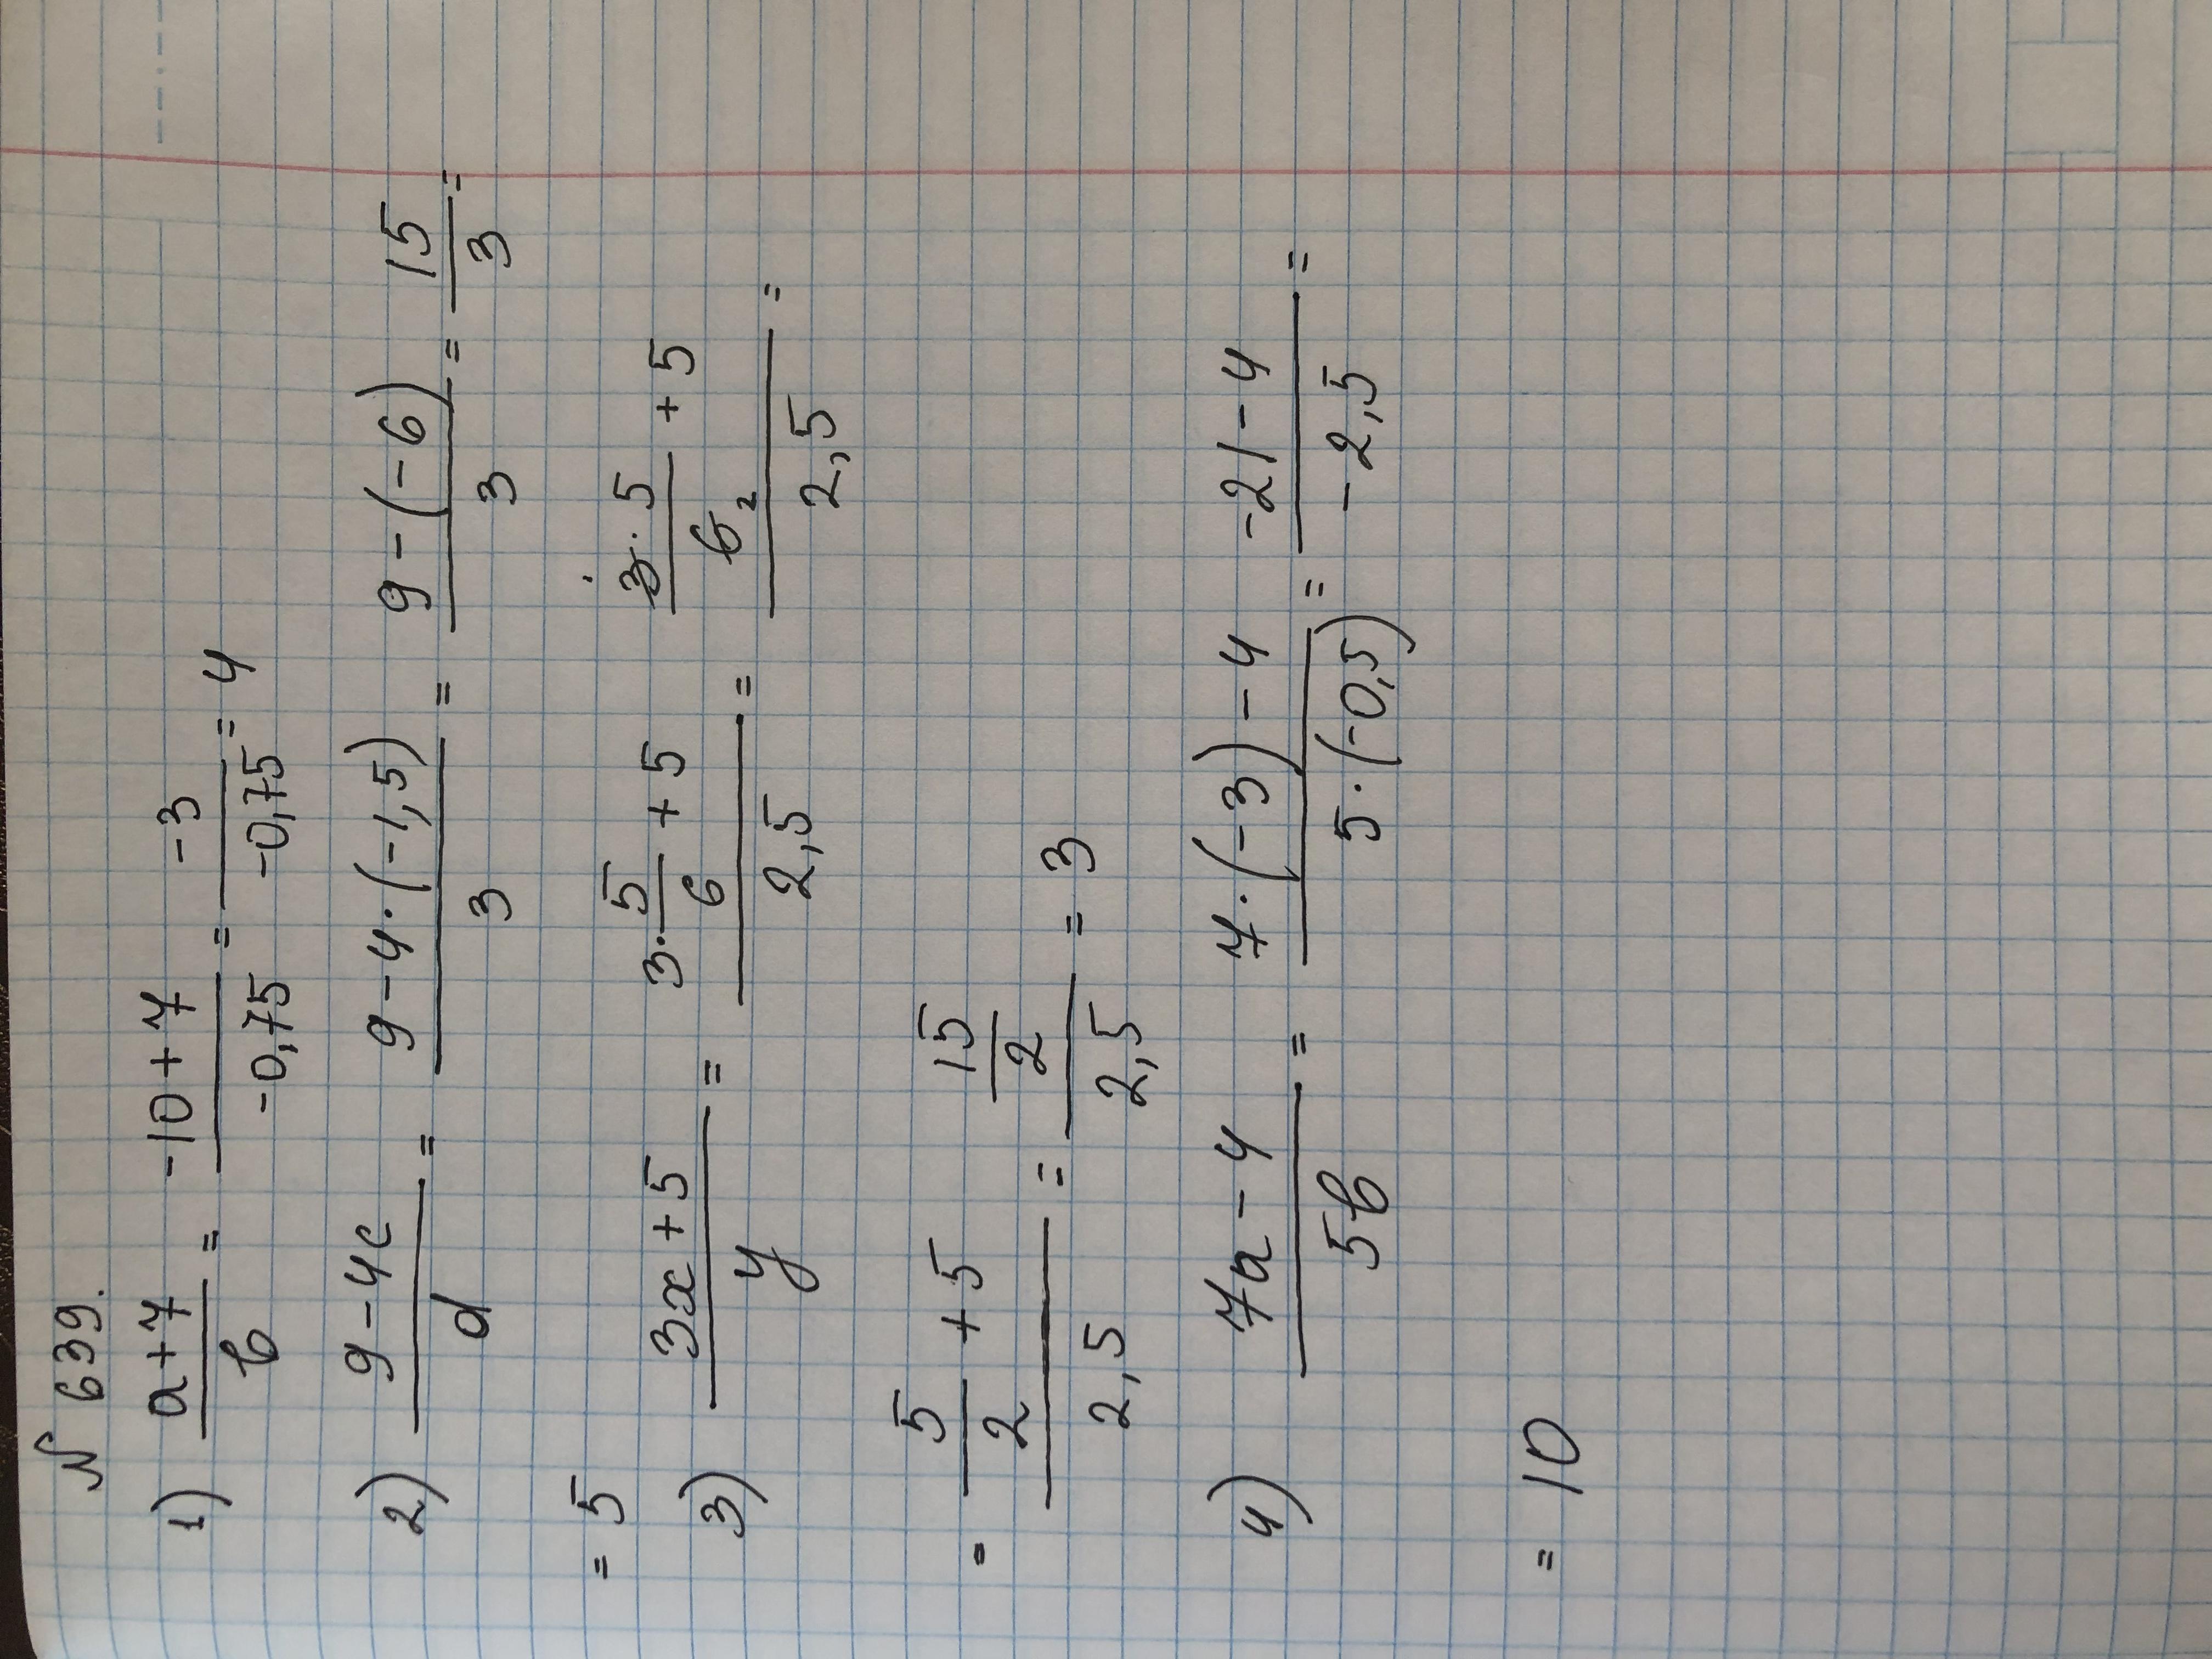 N 639.
1) (a+7)/b = (-10+7)/(-0,75) = (-3)/(-0,75) = 4
2) (9-4c)/d = (9-4·(-1,5))/3 = (9-(-6))/3 = 15/3 =
= 5
3) (3x+5)/y = (3·5/6+5)/2,5 = ((3·5)/6+5)/2,5 =
= (5/2+5)/2,5 = (15/2)/2,5 = 3
4) (7a-4)/(5b) = (7·(-3)-4)/(5·(-0,5)) = (-21-4)/(-2,5) =
= 10